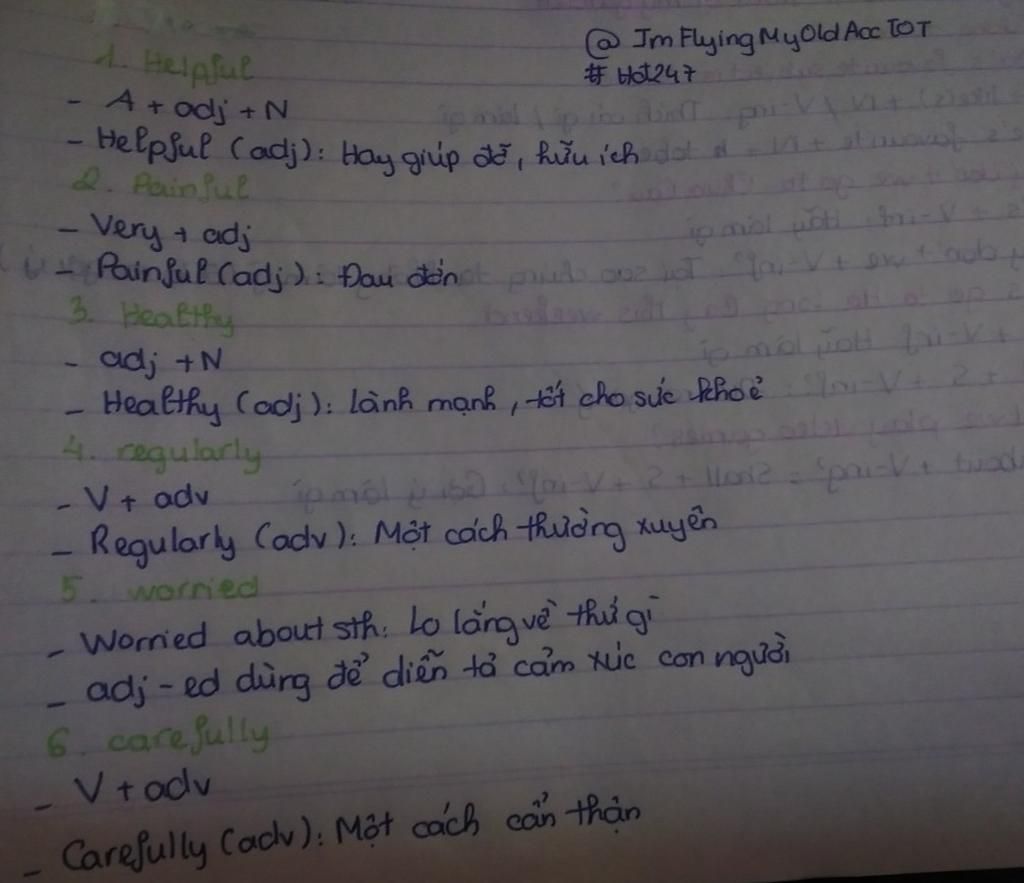 @ ImFlyingMyOldAccTOT
# Hot247
1. Helpful
- A + adj + N
- Helpful (adj): Hay giúp đỡ, hữu ích
2. Painful
- Very + adj
- Painful (adj): Đau đớn
3. Healthy
- adj + N
- Healthy (adj): lành mạnh, tốt cho sức khoẻ
4. regularly
- V + adv
- Regularly (adv): Một cách thường xuyên
5. worried
- Worried about sth: Lo lắng về thứ gì
- adj-ed dùng để diễn tả cảm xúc con người
6. carefully
- V + adv
- Carefully (adv): Một cách cẩn thận